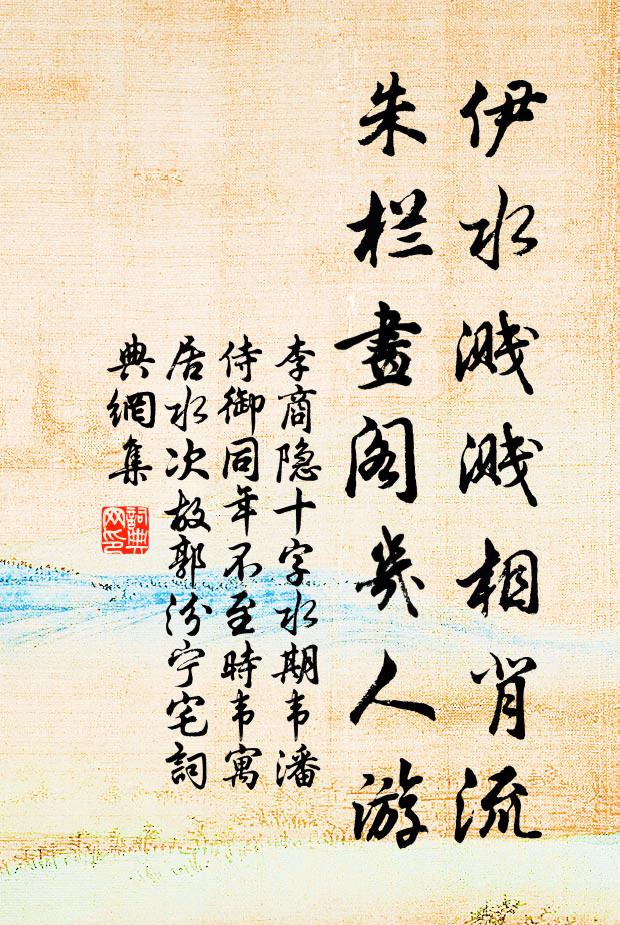 伊水溅溅相背流
朱栏畫阁几人游
李商隐十字水期韦潘
侍御同年不至時韦寓
居水次故郭汾宁宅詞
典網集
詞典
网印